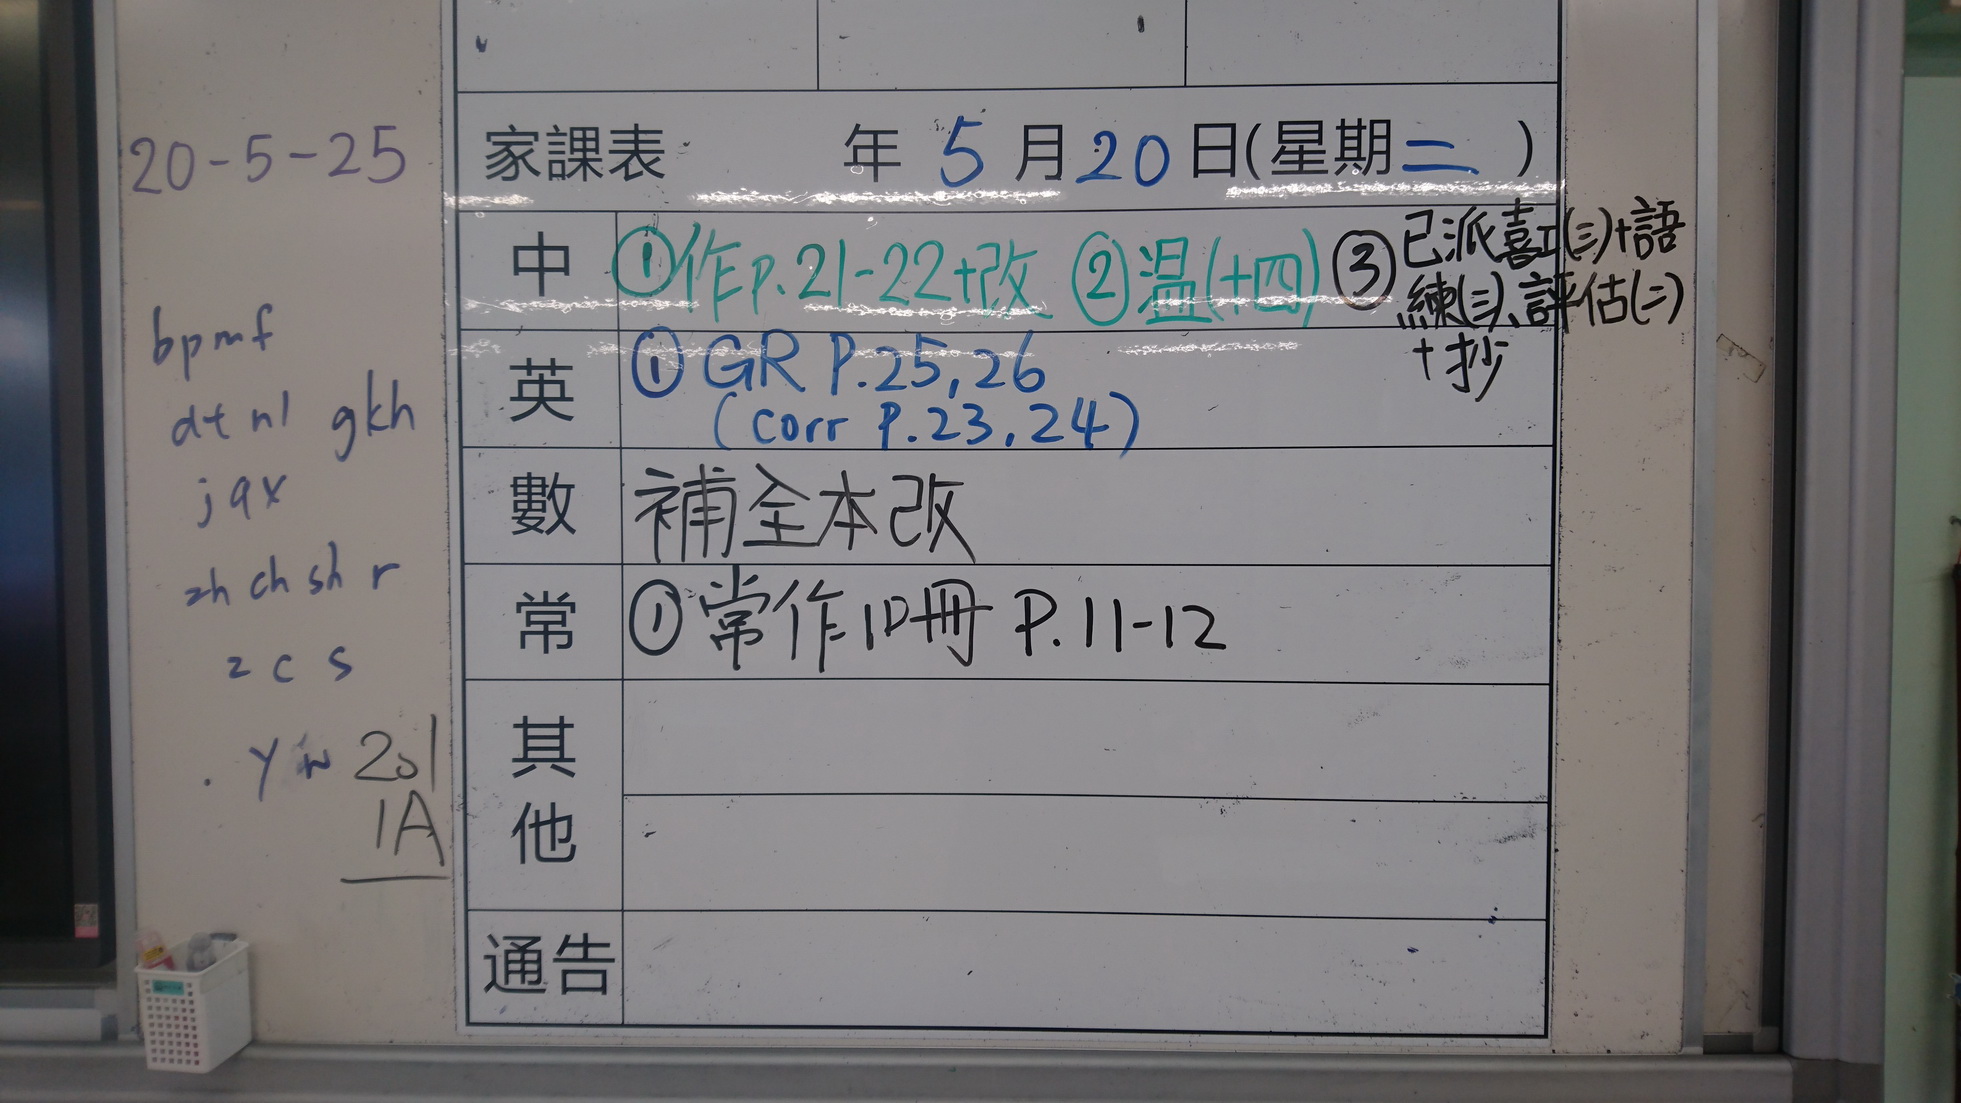 20-5-25
家課表 年 5 月 20 日(星期二)
中 ①作p.21-22+改 ②温(十四) ③已派喜工(三)+語
練(三)、評估(二)
+抄
英 ① GR P.25,26
(corr P.23,24)
數 補全本改
常 ①常作1D冊 P.11-12
其他
通告
bpmf
dt nl gkh
jqx
zh ch sh r
z c s
y w
201
1A